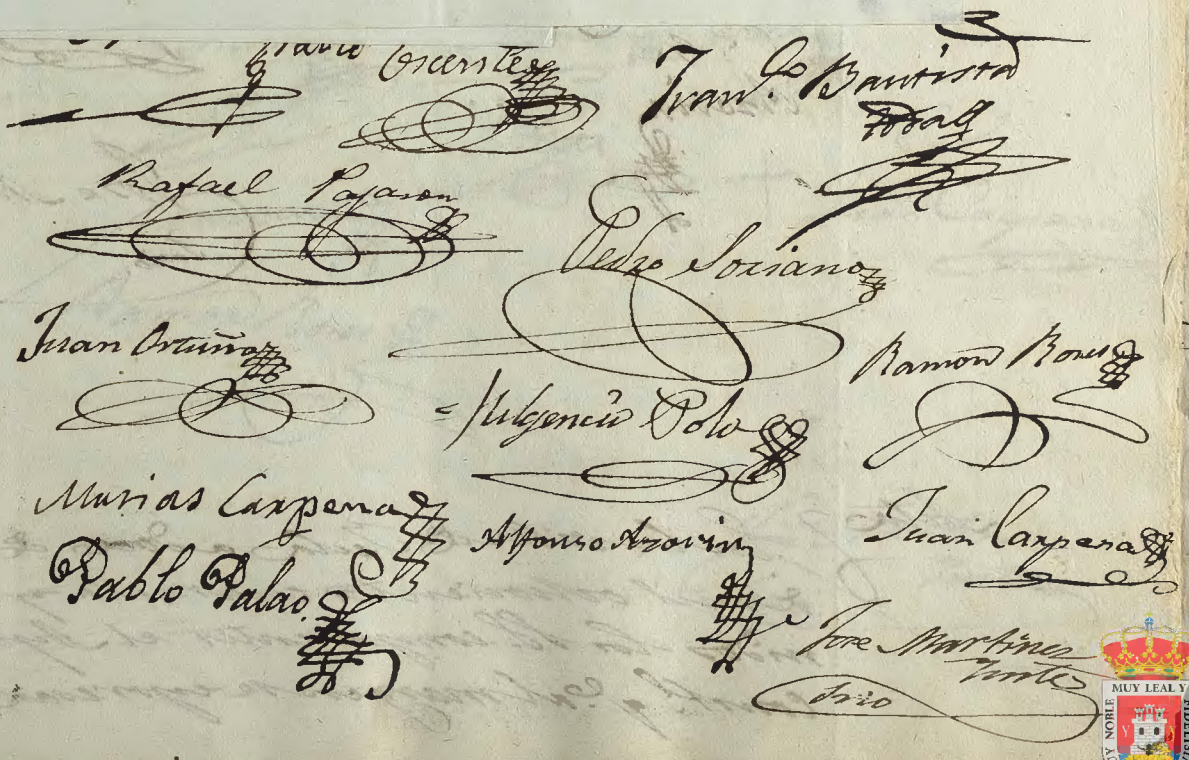 Vicente
Fran.co Bautista
Rafael Pajaron
Pedro Soriano
Juan Ortuño
Ramon
= Fulgencio Polo
Matias Carpena
Alfonso Azorin
Juan Carpena
Pablo Palao
Jose Martinez
Srio
MUY LEAL Y
NOBLE